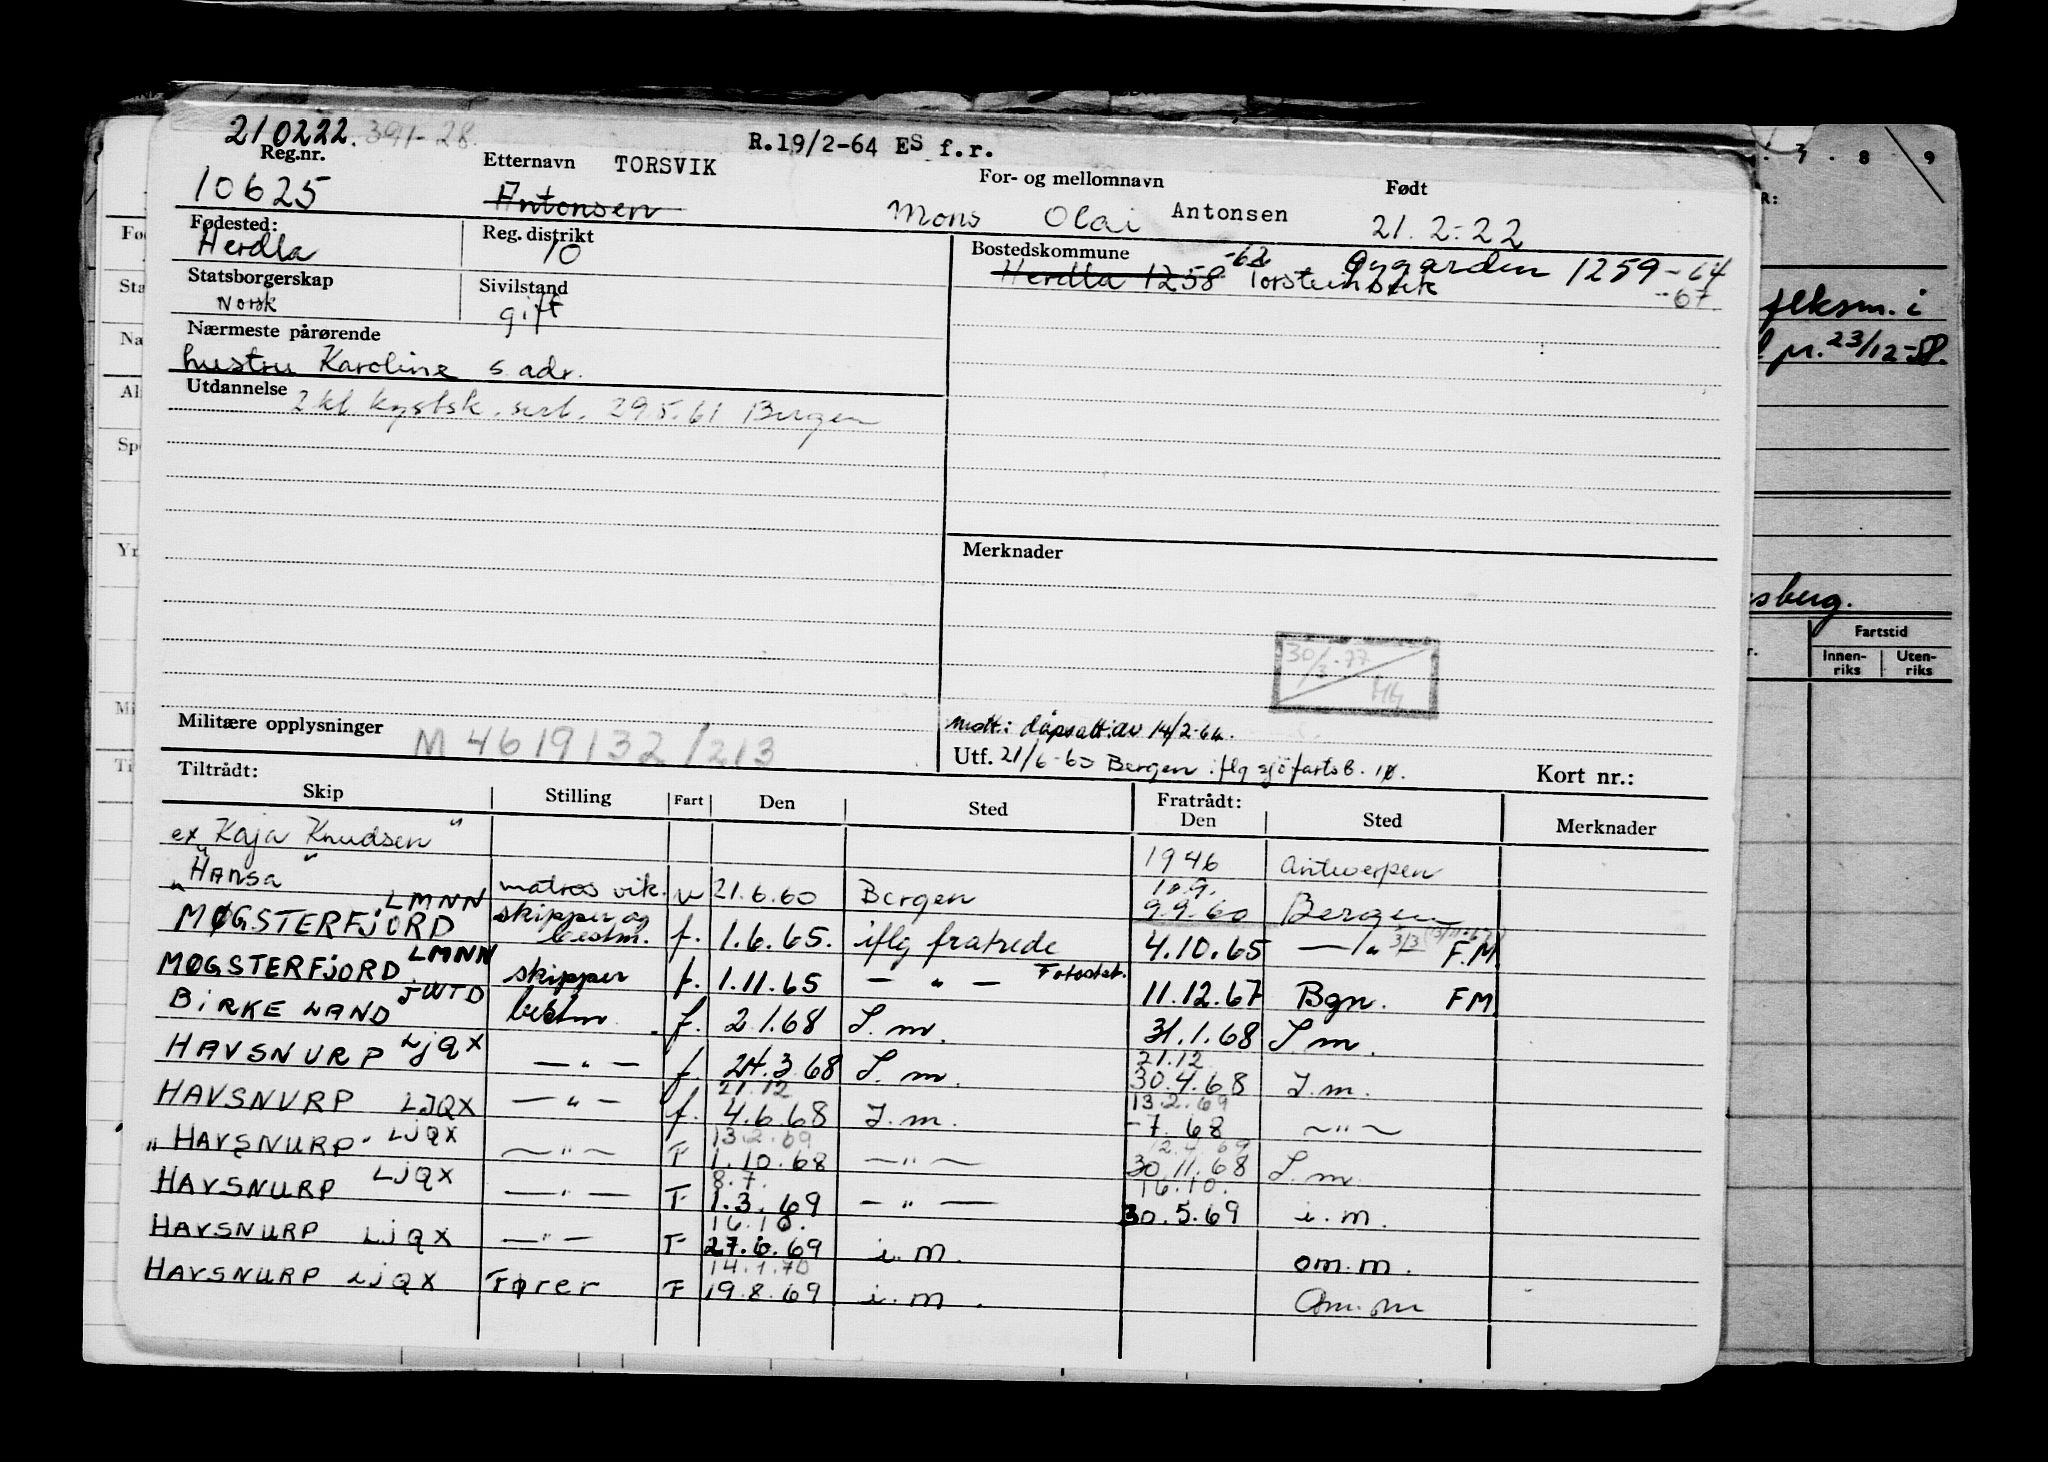 210222. 391-28.
R.19/2-64 ES f.r.
Reg.nr. Etternavn TORSVIK For- og mellomnavn Født
10625 Antonsen Mons Olai Antonsen 21.2.22
Fødested: Herdla
Reg. distrikt 10
Bostedskommune Herdla 1258 -62 Øygarden 1259 -64
-67
Statsborgerskap Norsk
Sivilstand gift
Nærmeste pårørende
hustru Karoline s. adr.
Utdannelse 2 kl kystsk. sert. 29.5.61 Bergen
Merknader
30/3-77
Militære opplysninger M 4619132/213
Mott: dåpsatt. av 14/2-64.
Utf. 21/6-60 Bergen iflg sjöfartsb. 10.
Kort nr.:
Tiltrådt: Fratrådt:
Skip Stilling Fart Den Sted Den Sted Merknader
ex Kaja Knudsen" 1946 Antwerpen
"Hansa" matros vik. u 21.6.60 Bergen 10.9. 9.9.60 Bergen
MØGSTERFJORD LMNN skipper og bestm. f. 1.6.65. iflg fratrede 4.10.65 — " F.M.
MØGSTERFJORD LMNN skipper f. 1.11.65 — " — Fotostat. 11.12.67 Bgn. FM
BIRKELAND JWTD bestm f. 2.1.68 I.m. 31.1.68 I.m.
HAVSNURP LJQX — " — f. 24.3.68 I.m. 21.12 30.4.68 I.m.
HAVSNURP LJQX — " — f. 21.12 4.6.68 I.m. 13.2.69 -7.68 — " —
"HAVSNURP" LJQX — " — F 13.2.69 1.10.68 — " — 30.11.68 I.m.
HAVSNURP LJQX — " — F 8.7. 1.3.69 — " — 16.10. 30.5.69 i.m.
HAVSNURP LJQX — " — F 16.10. 27.6.69 i.m. om.m.
HAVSNURP LJQX Fører F 14.1.70 19.8.69 i.m. Om.m
7 8 9
R:
flksm. i
pr. 23/12-58.
sberg.
Fartstid
Innen-riks Uten-riks